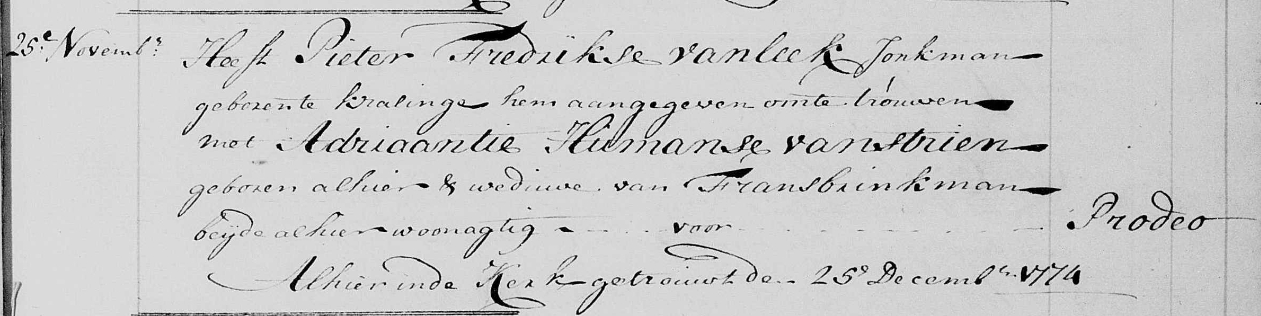 25e Novembr Heeft Pieter Fredrikse van leek Jonkman
geboren te kralinge hem aangegeven om te trouwen
met Adriaantie Humanse van strien
geboren alhier & weduwe van Frans brinkman
beijde alhier woonagtig voor Prodeo
Alhier in de Kerk getrouwt de 25e Decembr 1774